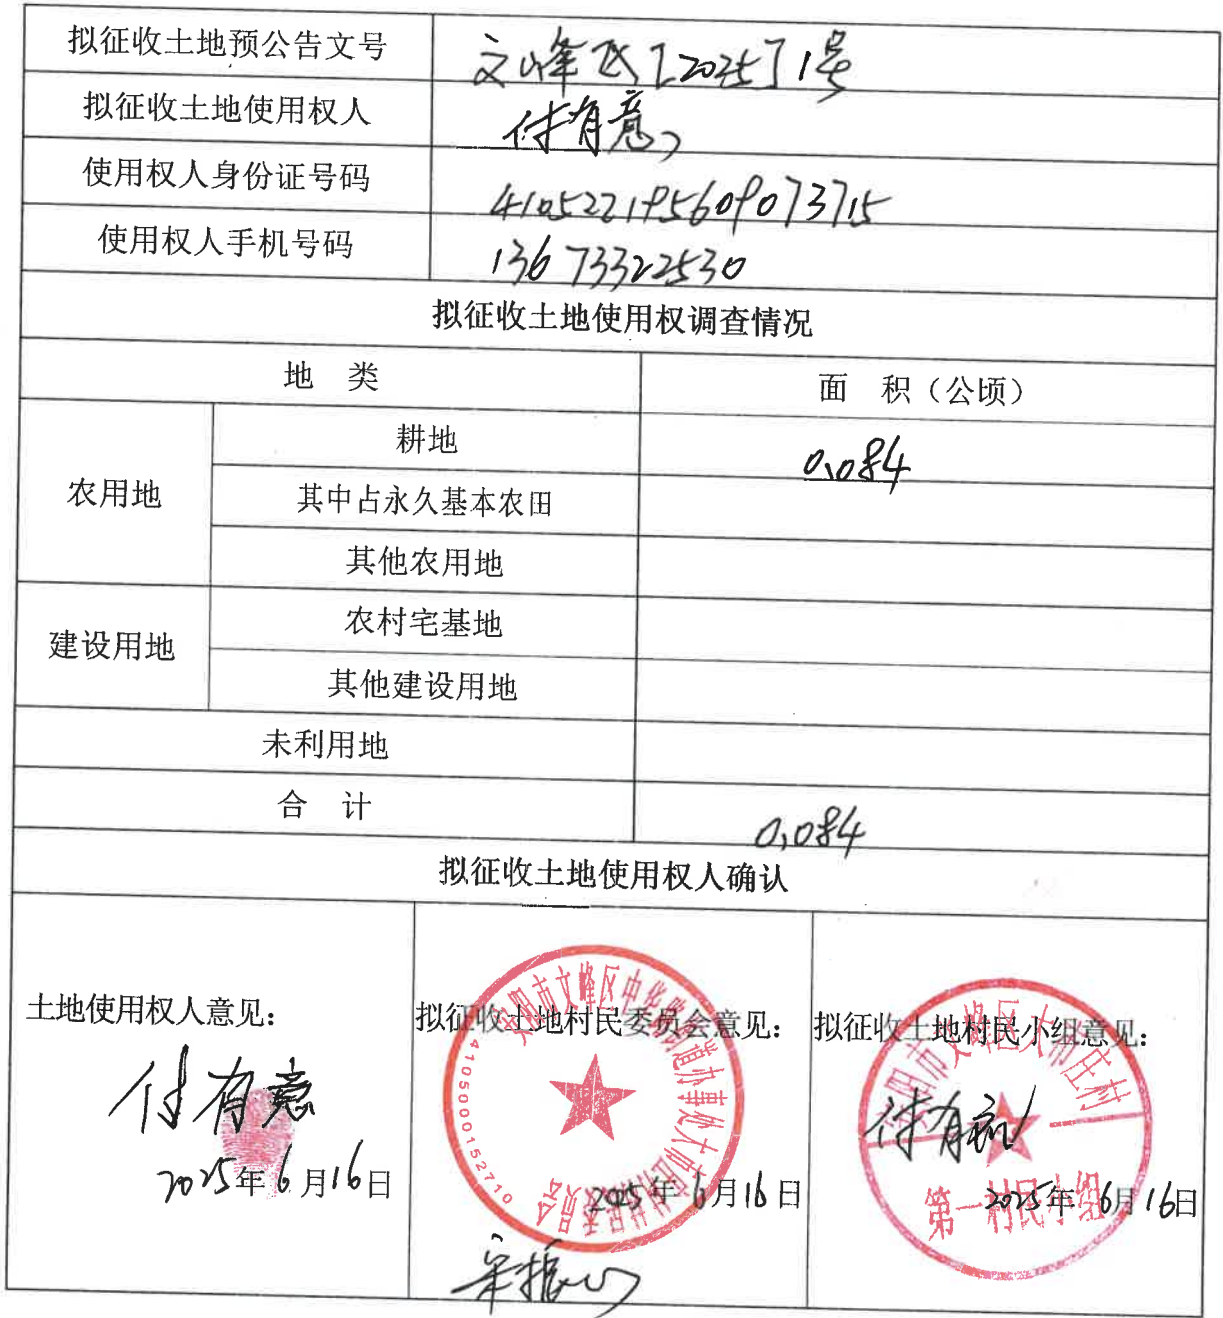 拟征收土地预公告文号 文峰区[2025]1号
拟征收土地使用权人 付有意
使用权人身份证号码 410522195609073715
使用权人手机号码 13673322530
拟征收土地使用权调查情况
地 类 面 积（公顷）
农用地 耕地 0.084
其中占永久基本农田
其他农用地
建设用地 农村宅基地
其他建设用地
未利用地
合 计 0.084
拟征收土地使用权人确认
土地使用权人意见：
付有意
2025年6月16日
拟征收土地村民委员会意见：
4105000152710
2025年6月16日
拟征收土地村民小组意见：
第一村民小组
2025年6月16日